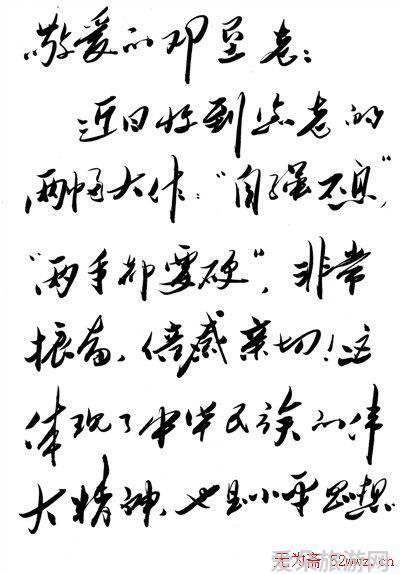 敬爱的邓垦老：
近日收到您老的
两幅大作：“自强不息”，
“两手都要硬”，非常
振奋，倍感亲切！这
体现了中华民族的伟
大精神，也是小平思想
无为斋 52wwz.cn
爱采旅游网